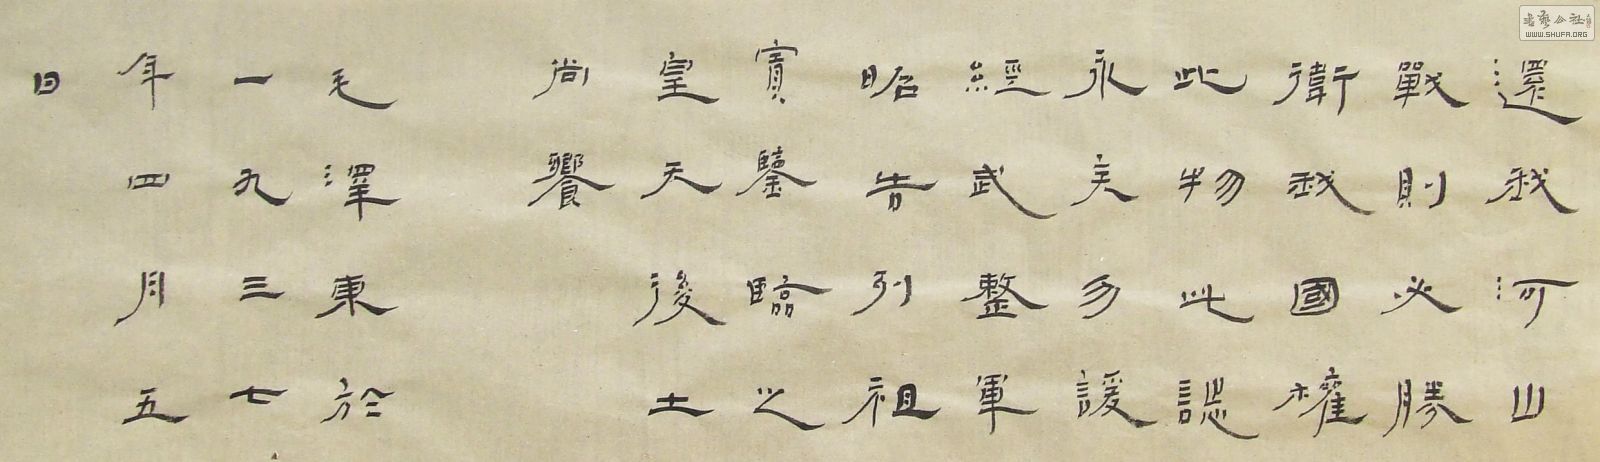 還我河山
戰則必勝
衛我國權
此物此誌
永矢勿諼
經武整軍
昭告列祖
實鑒臨之
皇天後土
尚饗
毛澤東於
一九三七
年四月五
日
書藝公社
WWW.SHUFA.ORG